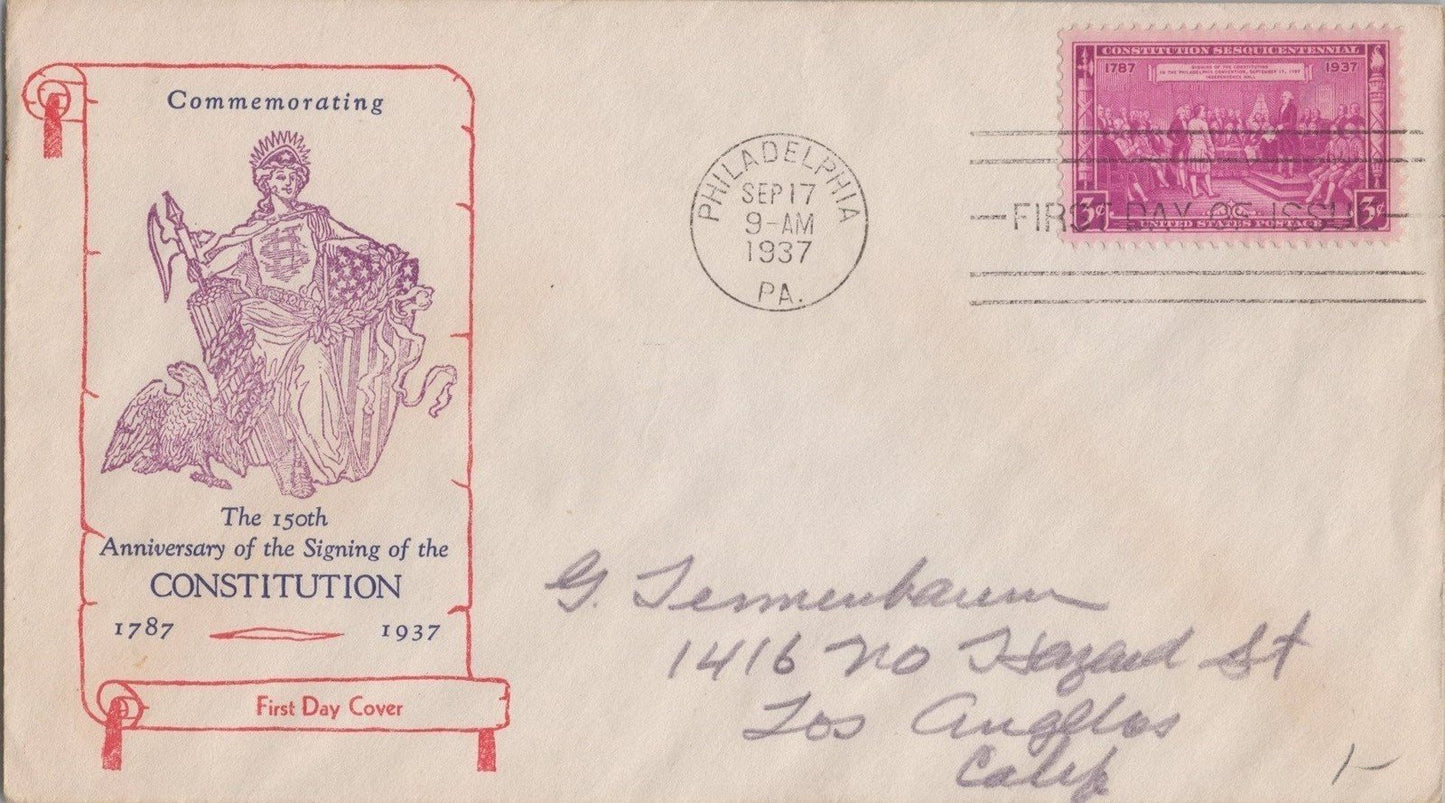 Commemorating
The 150th
Anniversary of the Signing of the
CONSTITUTION
1787 1937
First Day Cover
PHILADELPHIA
SEP 17
9-AM
1937
PA.
CONSTITUTION SESQUICENTENNIAL
1787 1937
SIGNING OF THE CONSTITUTION
IN THE PHILADELPHIA CONVENTION, SEPTEMBER 17, 1787
INDEPENDENCE HALL
3¢ 3¢
UNITED STATES POSTAGE
FIRST DAY OF ISSUE
G. Tennenbaum
1416 No Hazard St
Los Angeles
Calif
1-